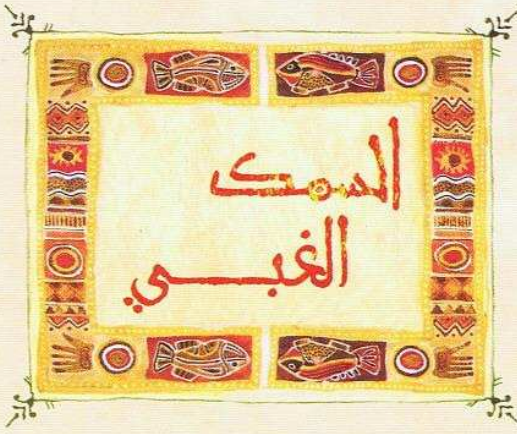 السمك
الغبي